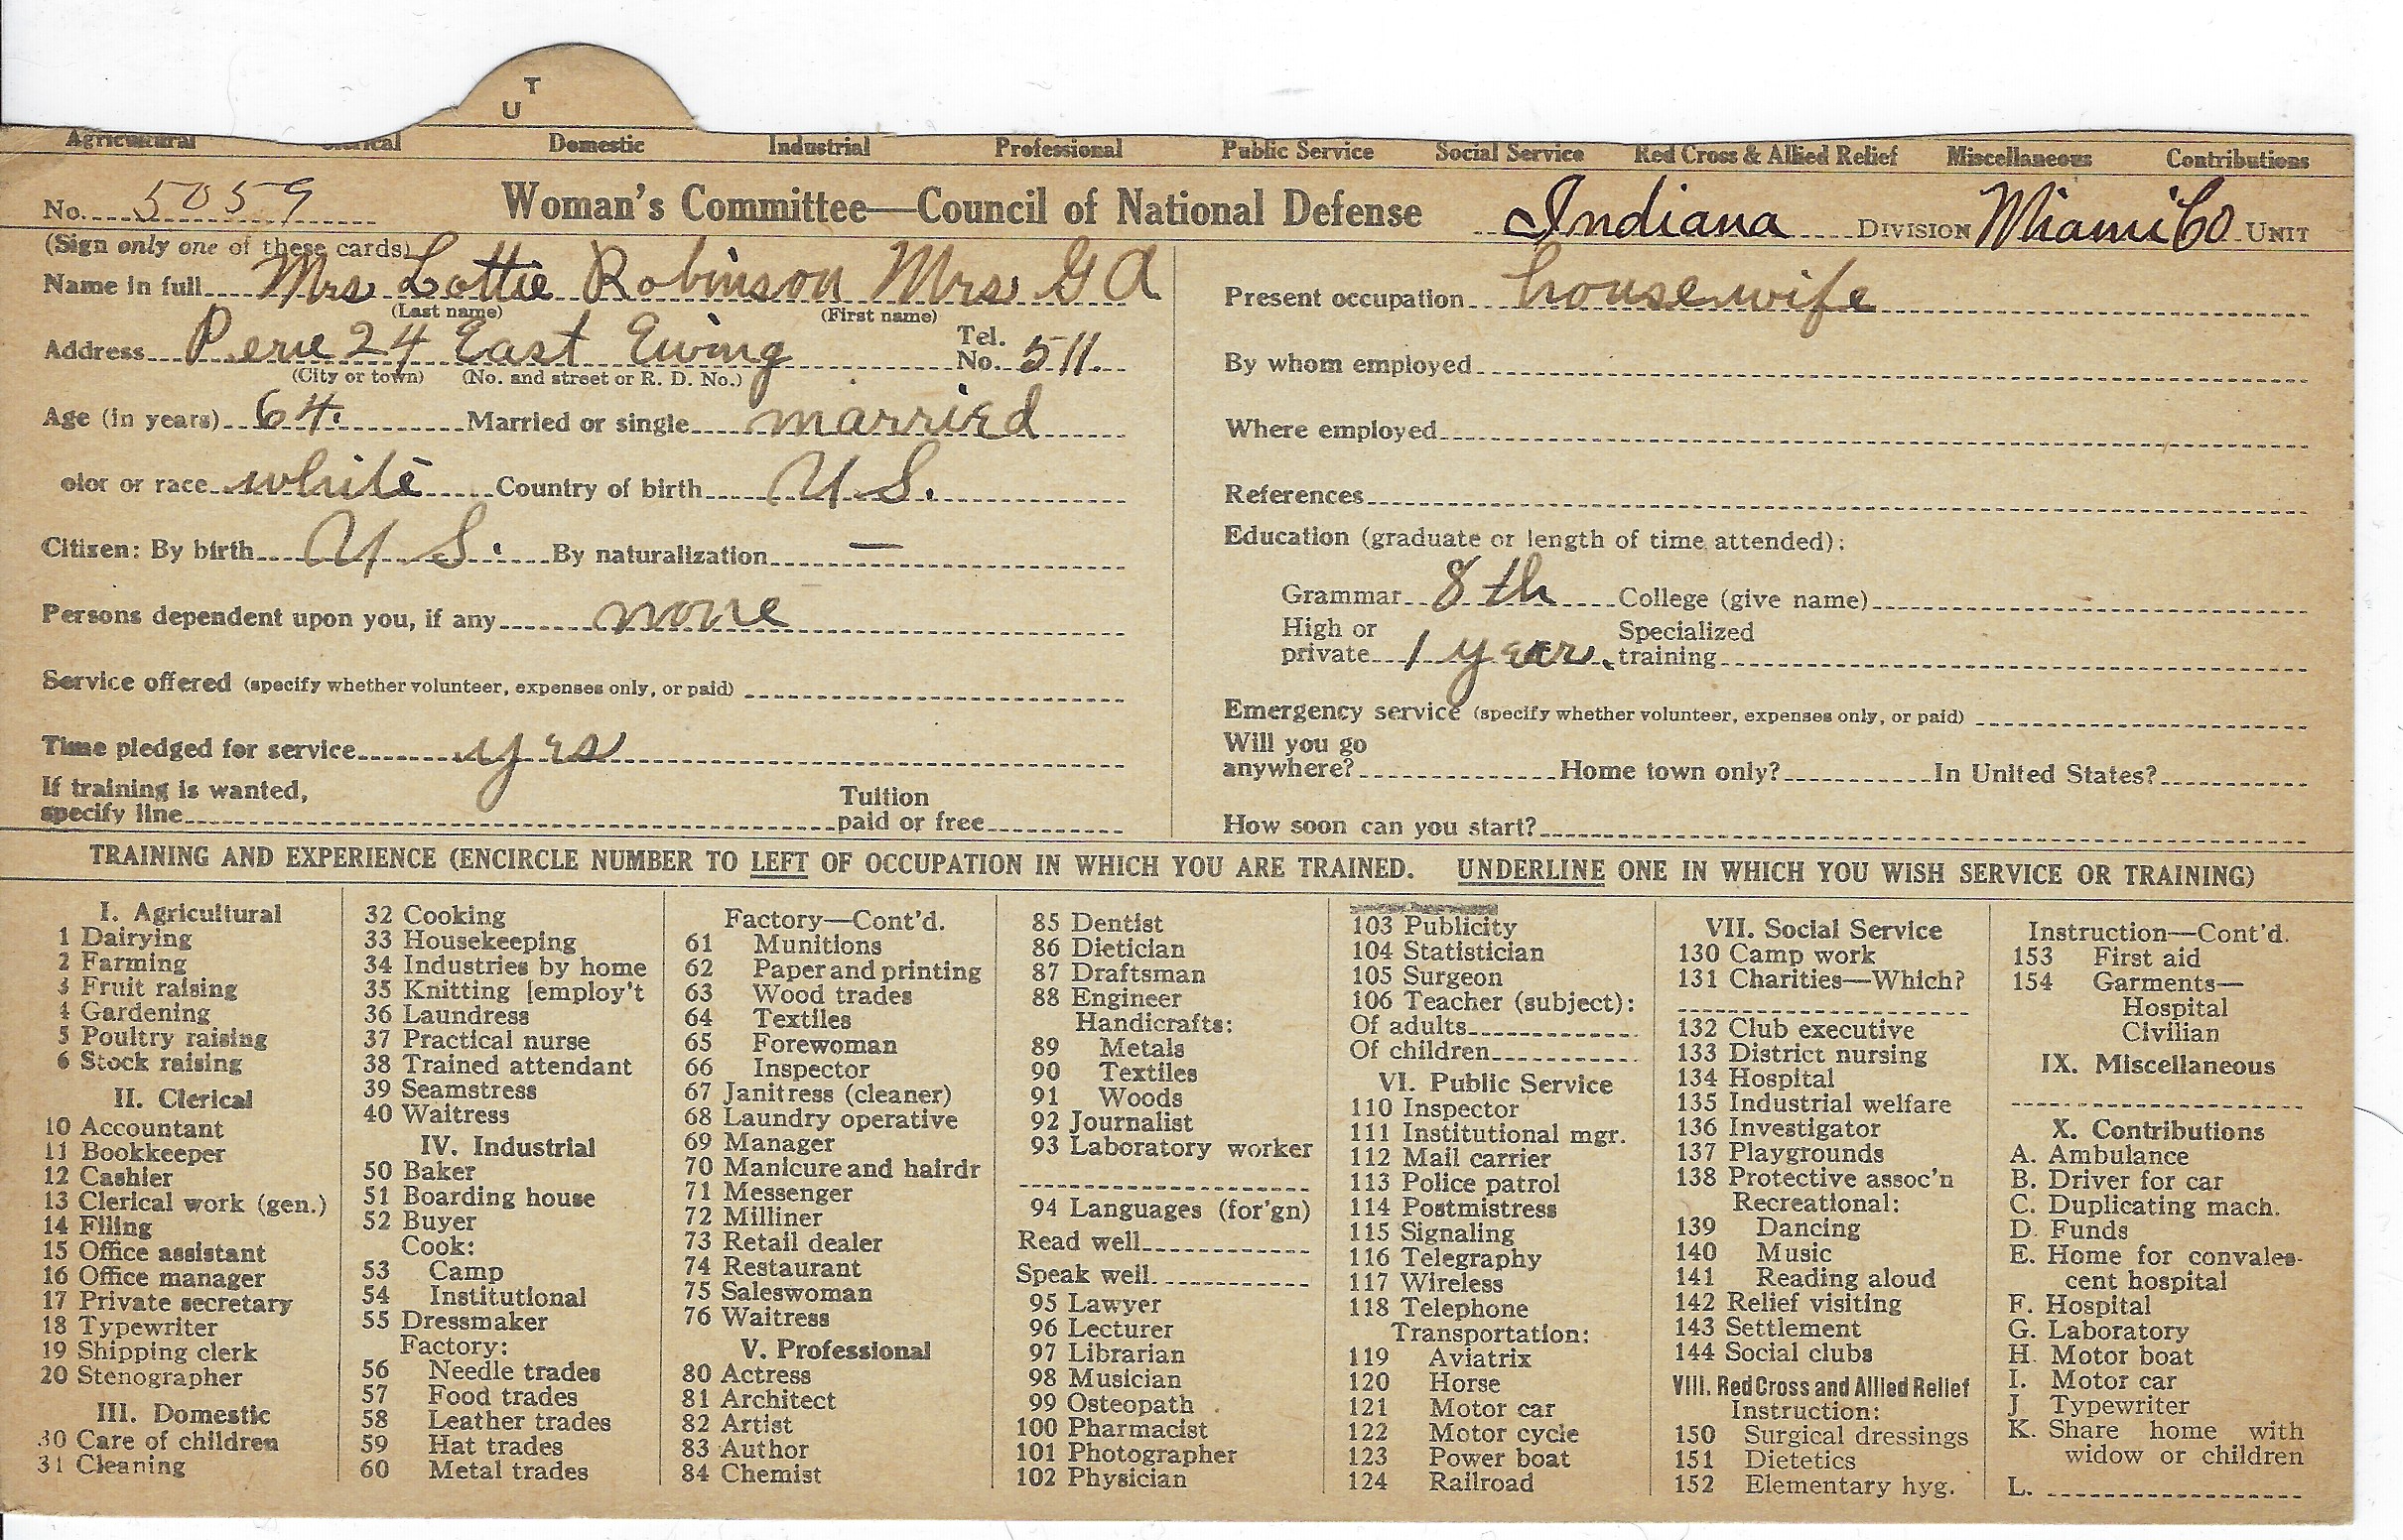 T
U
Agricultural Clerical Domestic Industrial Professional Public Service Social Service Red Cross & Allied Relief Miscellaneous Contributions
No. 5059 Woman's Committee—Council of National Defense Indiana DIVISION Miami Co UNIT
(Sign only one of these cards)
Name in full Mrs Lottie Robinson Mrs G A
(Last name) (First name)
Address Peru 24 East Ewing Tel. No. 511.
(City or town) (No. and street or R. D. No.)
Age (in years) 64. Married or single married
olor or race white Country of birth U S.
Citizen: By birth U S. By naturalization —
Persons dependent upon you, if any none
Service offered (specify whether volunteer, expenses only, or paid)
Time pledged for service yes
If training is wanted,
specify line Tuition paid or free
Present occupation housewife
By whom employed
Where employed
References
Education (graduate or length of time attended):
Grammar 8th College (give name)
High or private 1 year. Specialized training
Emergency service (specify whether volunteer, expenses only, or paid)
Will you go
anywhere? Home town only? In United States?
How soon can you start?
TRAINING AND EXPERIENCE (ENCIRCLE NUMBER TO LEFT OF OCCUPATION IN WHICH YOU ARE TRAINED. UNDERLINE ONE IN WHICH YOU WISH SERVICE OR TRAINING)
I. Agricultural
1 Dairying
2 Farming
3 Fruit raising
4 Gardening
5 Poultry raising
6 Stock raising
II. Clerical
10 Accountant
11 Bookkeeper
12 Cashier
13 Clerical work (gen.)
14 Filing
15 Office assistant
16 Office manager
17 Private secretary
18 Typewriter
19 Shipping clerk
20 Stenographer
III. Domestic
30 Care of children
31 Cleaning
32 Cooking
33 Housekeeping
34 Industries by home
35 Knitting [employ't
36 Laundress
37 Practical nurse
38 Trained attendant
39 Seamstress
40 Waitress
IV. Industrial
50 Baker
51 Boarding house
52 Buyer
Cook:
53 Camp
54 Institutional
55 Dressmaker
Factory:
56 Needle trades
57 Food trades
58 Leather trades
59 Hat trades
60 Metal trades
Factory—Cont'd.
61 Munitions
62 Paper and printing
63 Wood trades
64 Textiles
65 Forewoman
66 Inspector
67 Janitress (cleaner)
68 Laundry operative
69 Manager
70 Manicure and hairdr
71 Messenger
72 Milliner
73 Retail dealer
74 Restaurant
75 Saleswoman
76 Waitress
V. Professional
80 Actress
81 Architect
82 Artist
83 Author
84 Chemist
85 Dentist
86 Dietician
87 Draftsman
88 Engineer
Handicrafts:
89 Metals
90 Textiles
91 Woods
92 Journalist
93 Laboratory worker
94 Languages (for'gn)
Read well
Speak well
95 Lawyer
96 Lecturer
97 Librarian
98 Musician
99 Osteopath
100 Pharmacist
101 Photographer
102 Physician
103 Publicity
104 Statistician
105 Surgeon
106 Teacher (subject):
Of adults
Of children
VI. Public Service
110 Inspector
111 Institutional mgr.
112 Mail carrier
113 Police patrol
114 Postmistress
115 Signaling
116 Telegraphy
117 Wireless
118 Telephone
Transportation:
119 Aviatrix
120 Horse
121 Motor car
122 Motor cycle
123 Power boat
124 Railroad
VII. Social Service
130 Camp work
131 Charities—Which?
132 Club executive
133 District nursing
134 Hospital
135 Industrial welfare
136 Investigator
137 Playgrounds
138 Protective assoc'n
Recreational:
139 Dancing
140 Music
141 Reading aloud
142 Relief visiting
143 Settlement
144 Social clubs
VIII. Red Cross and Allied Relief
Instruction:
150 Surgical dressings
151 Dietetics
152 Elementary hyg.
Instruction—Cont'd.
153 First aid
154 Garments—
Hospital
Civilian
IX. Miscellaneous
X. Contributions
A. Ambulance
B. Driver for car
C. Duplicating mach.
D. Funds
E. Home for convales-
cent hospital
F. Hospital
G. Laboratory
H. Motor boat
I. Motor car
J. Typewriter
K. Share home with
widow or children
L.